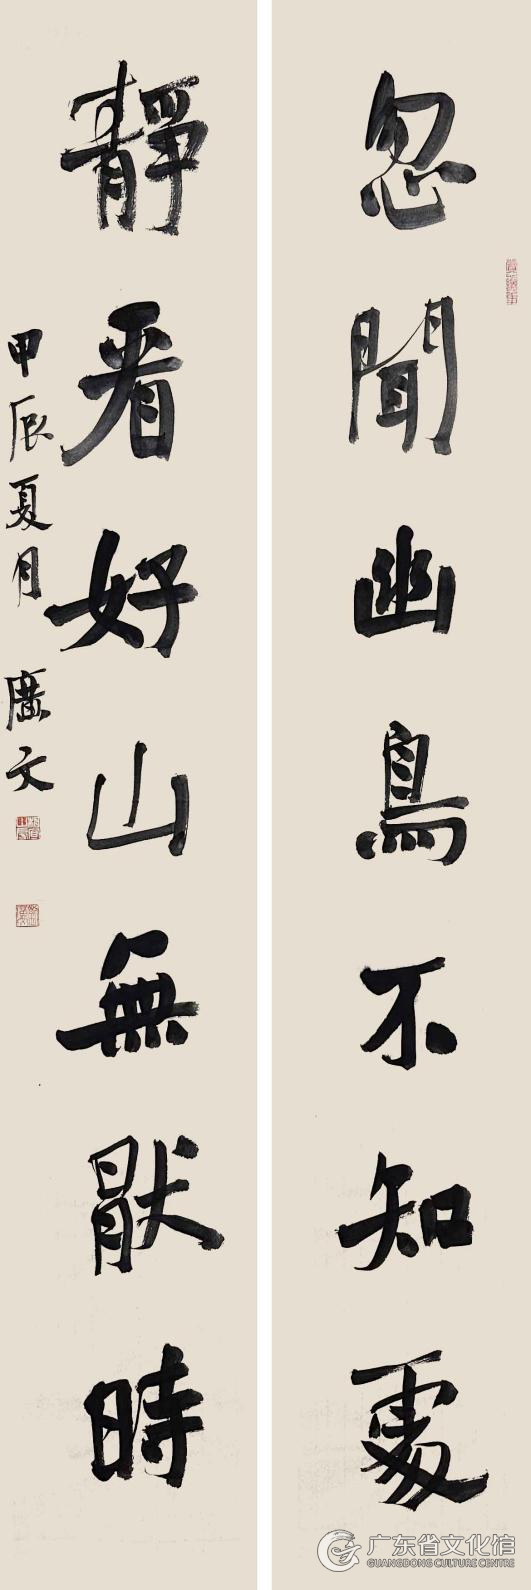 忽聞幽鳥不知處
靜看好山無猒時
甲辰夏月 廣文
广东省文化馆
GUANGDONG CULTURE CENTRE